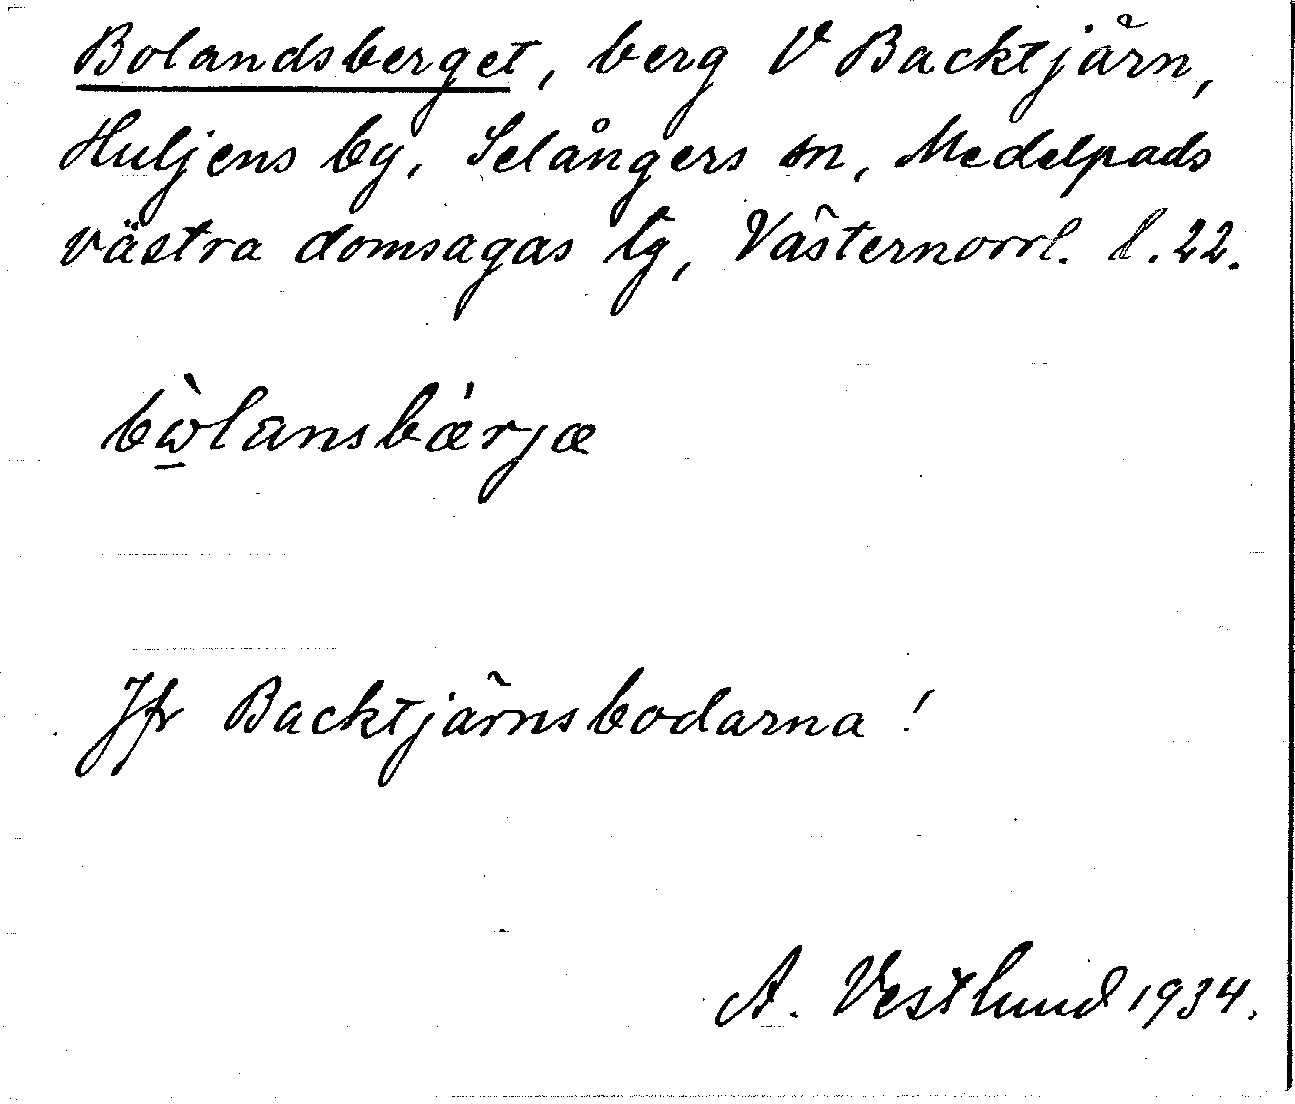 Bolandsberget, berg V Backtjärn,
Huljens by, Selångers sn, Medelpads
västra domsagas tg, Västernorrl. l. 22.
bὼ̲lansbǽrjæ
Jfr Backtjärnsbodarna!
A. Vestlund 1934.